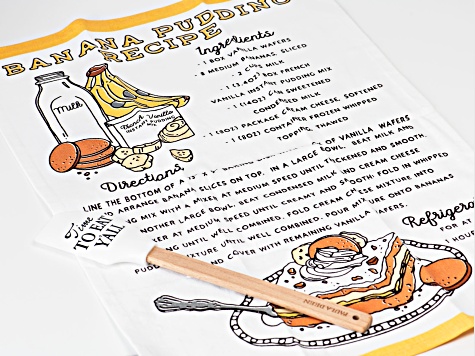 BANANA PUDDING
RECIPE
Ingredients
- 1 BOX VANILLA WAFERS
- 8 MEDIUM BANANAS, SLICED
- 2 CUPS MILK
- 1 (3.4OZ) BOX FRENCH
VANILLA INSTANT PUDDING MIX
- 1 (14OZ) CAN SWEETENED
CONDENSED MILK
- 1 (8OZ) PACKAGE CREAM CHEESE, SOFTENED
- 1 (8OZ) CONTAINER FROZEN WHIPPED
TOPPING, THAWED
Milk
French Vanilla
INSTANT PUDDING
Directions
LINE THE BOTTOM OF A OF VANILLA WAFERS
ARRANGE BANANA SLICES ON TOP. IN A LARGE BOWL, BEAT MILK AND
MIX WITH A MIXER AT MEDIUM SPEED UNTIL THICKENED AND SMOOTH.
ANOTHER LARGE BOWL, BEAT CONDENSED MILK AND CREAM CHEESE
AT MEDIUM SPEED UNTIL CREAMY AND SMOOTH. FOLD IN WHIPPED
UNTIL WELL COMBINED. FOLD CREAM CHEESE MIXTURE INTO
PUDDING MIXTURE UNTIL WELL COMBINED. POUR MIXTURE ONTO BANANAS
AND COVER WITH REMAINING VANILLA WAFERS.
Time
TO EAT
Y'ALL
Refrigera
FOR A
1 HOU
PAULA DEEN